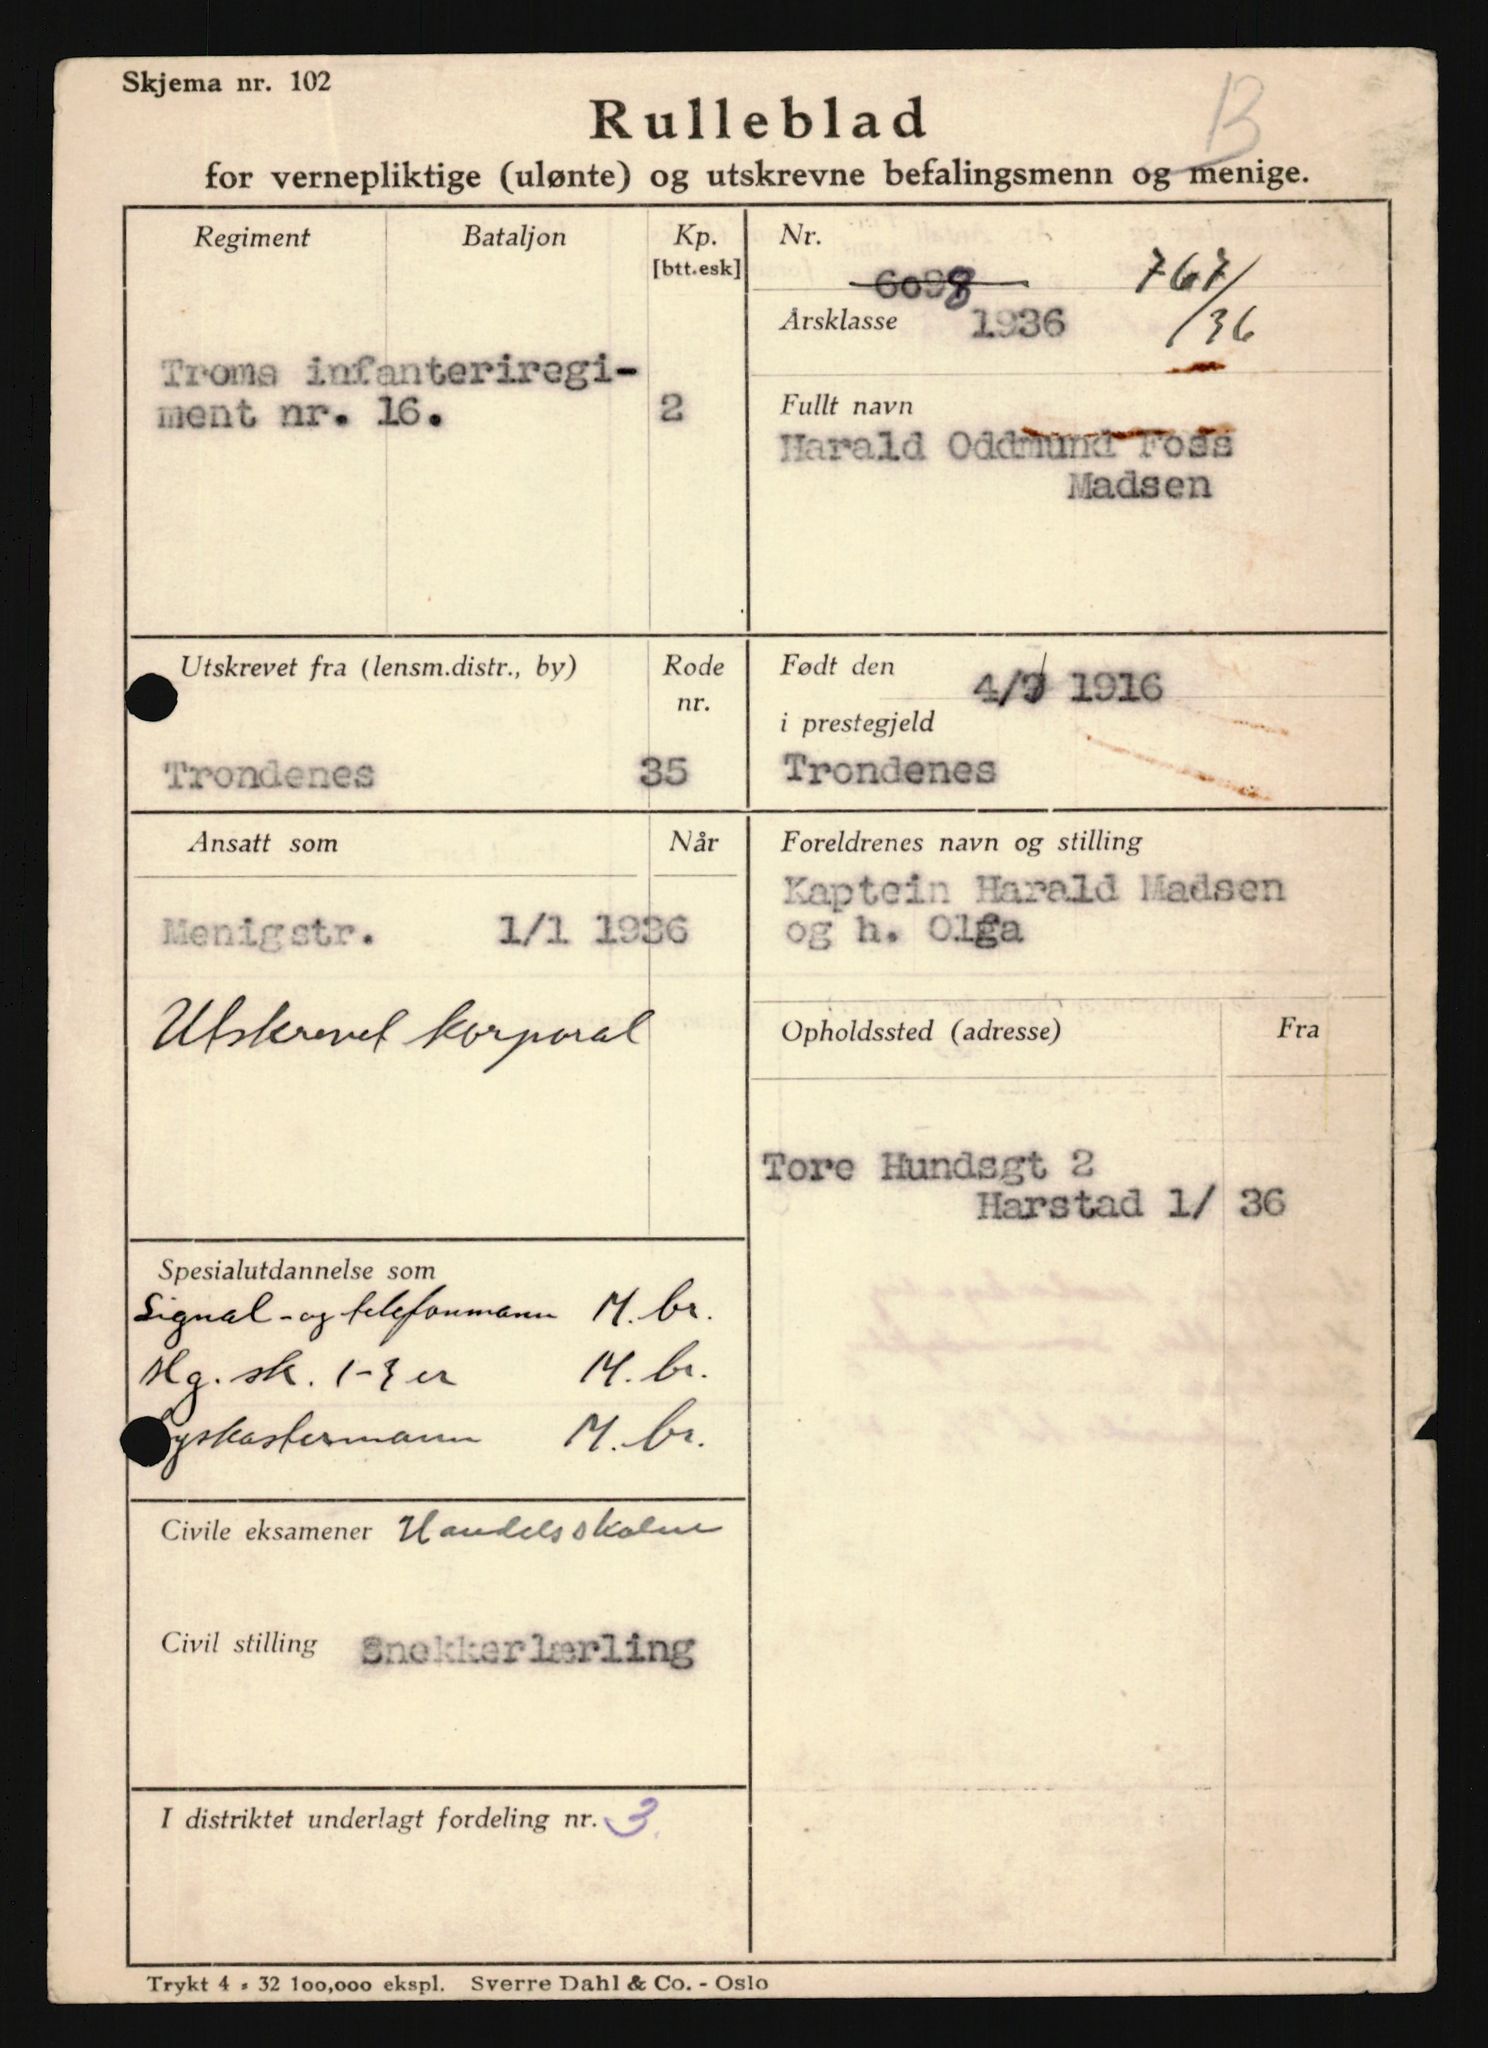 Skjema nr. 102
B
Rulleblad
for vernepliktige (ulønte) og utskrevne befalingsmenn og menige.
Regiment Bataljon Kp. [btt.esk]
Troms infanteriregi-
ment nr. 16. 2
Nr.
6098 767/36
Årsklasse 1936
Fullt navn
Harald Oddmund Foss
Madsen
Utskrevet fra (lensm.distr., by) Rode nr.
Trondenes 35
Født den 4/9 1916
i prestegjeld
Trondenes
Ansatt som Når
Menigstr. 1/1 1936
Utskrevet korporal
Foreldrenes navn og stilling
Kaptein Harald Madsen
og h. Olga
Opholdssted (adresse) Fra
Tore Hundsgt 2
Harstad 1/ 36
Spesialutdannelse som
Signal- og telefonmann M. br.
Mg. sk. 1-3 er M. br.
Lyskastermann M. br.
Civile eksamener Handelsskolen
Civil stilling Snekkerlærling
I distriktet underlagt fordeling nr. 3.
Trykt 4 - 32 100,000 ekspl. Sverre Dahl & Co. - Oslo